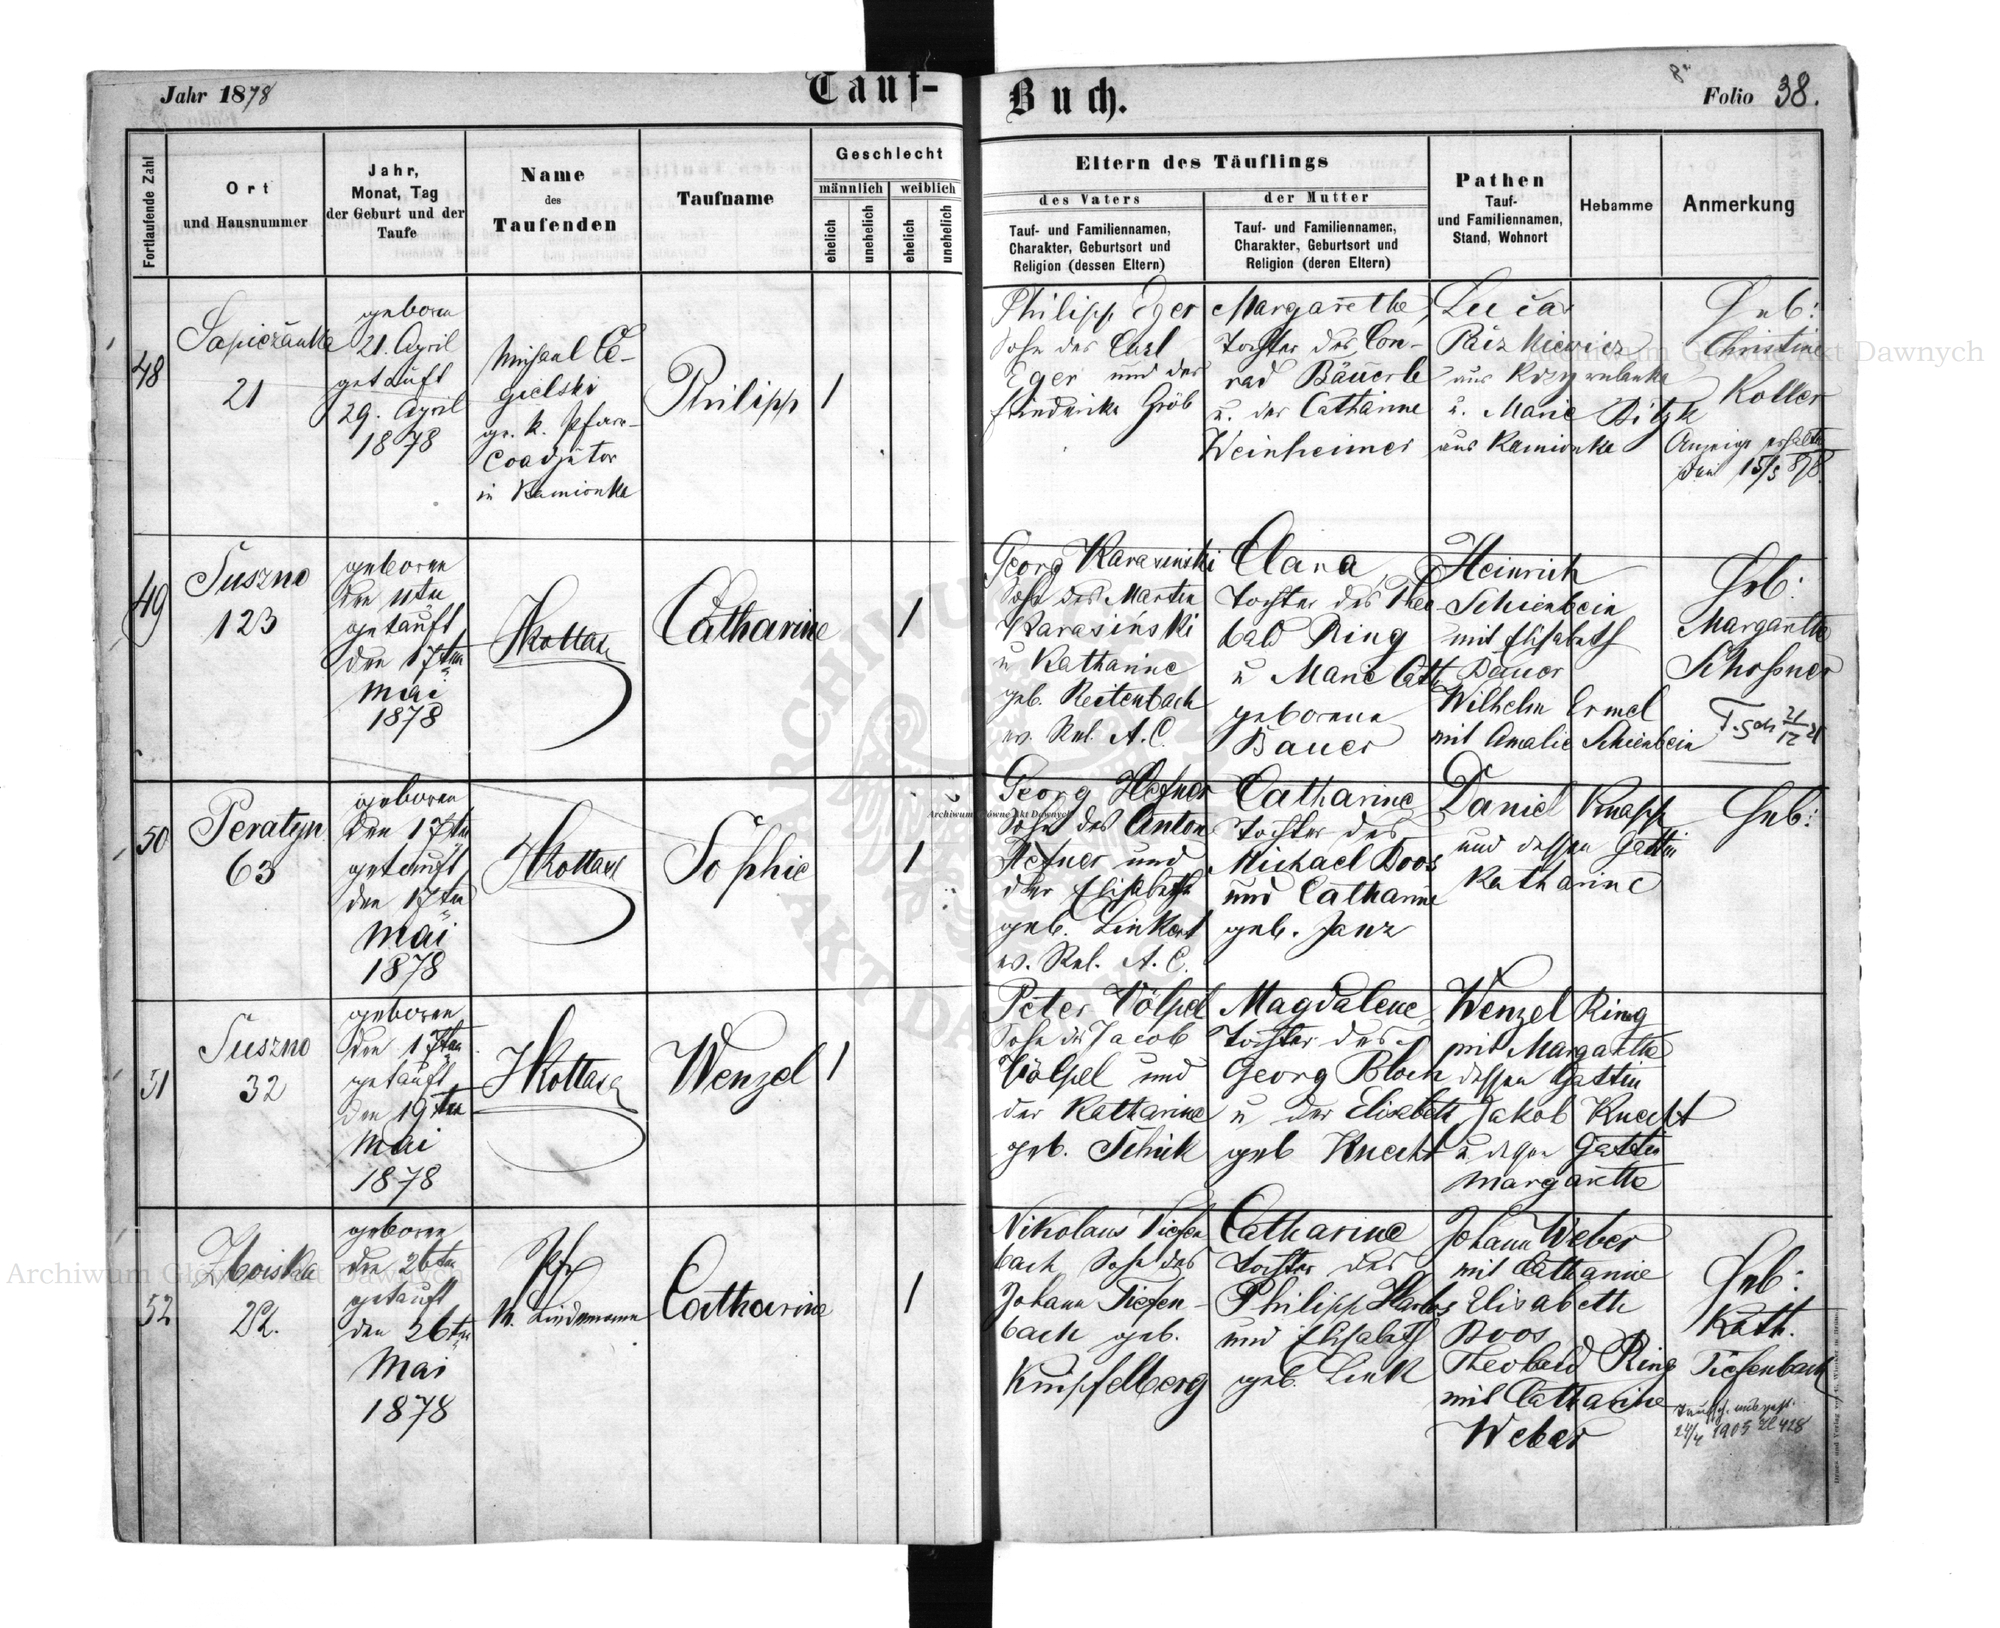 Jahr 1878
Tauf-
Buch.
Folio 38.
Fortlaufende Zahl
Ort
und Hausnummer
Jahr,
Monat, Tag
der Geburt und der
Taufe
Name
des
Taufenden
Taufname
Geschlecht
männlich
weiblich
ehelich
unehelich
ehelich
unehelich
Eltern des Täuflings
des Vaters
Tauf- und Familiennamen,
Charakter, Geburtsort und
Religion (dessen Eltern)
der Mutter
Tauf- und Familiennamen,
Charakter, Geburtsort und
Religion (deren Eltern)
Pathen
Tauf-
und Familiennamen,
Stand, Wohnort
Hebamme
Anmerkung
48
Sapiežanka
21
geboren
21. April
getauft
29. April
1878
Michael Ce-
gielski
gr. k. Pfarr-
Coadjutor
in Kamionka
Philipp
1
Philipp Eger
Sohn des Carl
Eger und der
Friederika Gröb
Margarethe,
Tochter des Con-
rad Bäuerle
u. der Catharine
Weinheimer
Lucas
aus
u. Marie
aus Kamionka
Heb:
Christine
Koller
Anzeige erhalten
den 15/5 878
49
Suszno
123
geboren
den 11ten
getauft
den 17ten
Mai
1878
JKottasz
Catharine
1
Georg Karasinski
Sohn des Martin
Karasinski
u Katharine
geb. Reitenbach
ev. Rel. A. C.
Clara,
Tochter des Theo-
bald Ring
u Marie Cath
geborene
Bauer
Heinrich
Schienbein
mit Elisabeth
Bauer
Wilhelm Ermel
mit Amalie Schienbein
Heb:
Margarethe
Schossner
T. Sch 21/12 21
50
Peratyn
63
geboren
den 17ten
getauft
den 17ten
Mai
1878
JKottasz
Sophie
1
Georg Hefner
Sohn des Anton
Hefner und
der Elisabeth
geb. Linkert
ev. Rel. A. C.
Catharine
Tochter des
Michael Boos
und Catharine
geb. Janz
Daniel Knapp
und dessen Gattin
Katharine
Heb:
51
Suszno
32
geboren
den 17ten
getauft
den 19ten
Mai
1878
JKottasz
Wenzel
1
Peter Völpel
Sohn des Jacob
Völpel und
der Katharine
geb. Schick
Magdalene,
Tochter des
Georg Bloch
u der Elisabeth
geb Knecht
Wenzel Ring
mit Margarethe
dessen Gattin
Jakob Knecht
u dessen Gattin
Margarethe
52
Zboiska
22.
geboren
den 26ten
getauft
den 26ten
Mai
1878
Pfr
Lindemann
Catharine
1
Nikolaus Tiefen
bach Sohn des
Johann Tiefen-
bach geb.
Knipfelberg
Catharine
Tochter des
Philipp Harlos
und Elisabeth
geb. Link
Johann Weber
mit Catharine
Elisabeth
Boos
Theobald Ring
mit Catharine
Weber
Heb:
Kath.
Tiefenbach
24/4 1905 Zl 428
Archiwum Główne Akt Dawnych
Archiwum Główne Akt Dawnych
Archiwum Główne Akt Dawnych
ARCHIWUM GŁÓWNE AKT DAWNYCH